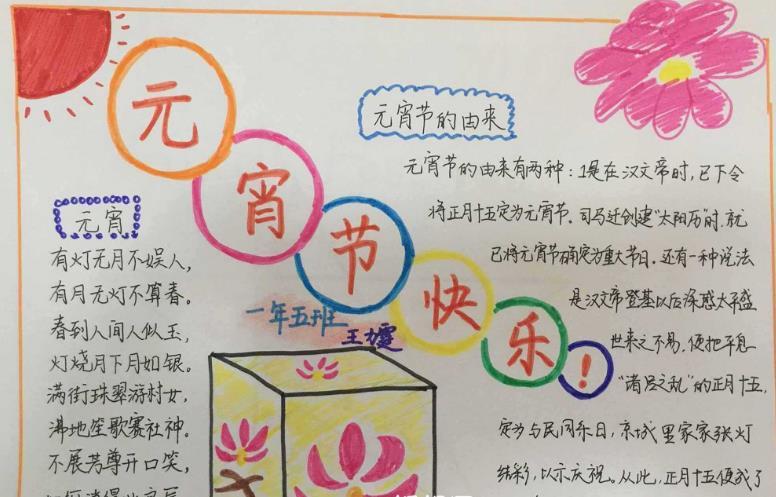 元宵节快乐！
元宵节的由来
元宵节的由来有两种：1是在汉文帝时，已下令
将正月十五定为元宵节。司马迁创建"太阳历"时，就
已将元宵节确定为重大节日。还有一种说法
是汉文帝登基以后深感太平盛
世来之不易，便把平息
"诸吕之乱"的正月十五，
定为与民同乐日，京城里家家张灯
结彩，以示庆祝。从此，正月十五便成了
元宵
有灯无月不娱人，
有月无灯不算春。
春到人间人似玉，
灯烧月下月如银。
满街珠翠游村女，
沸地笙歌赛社神。
不展芳尊开口笑，
一年五班